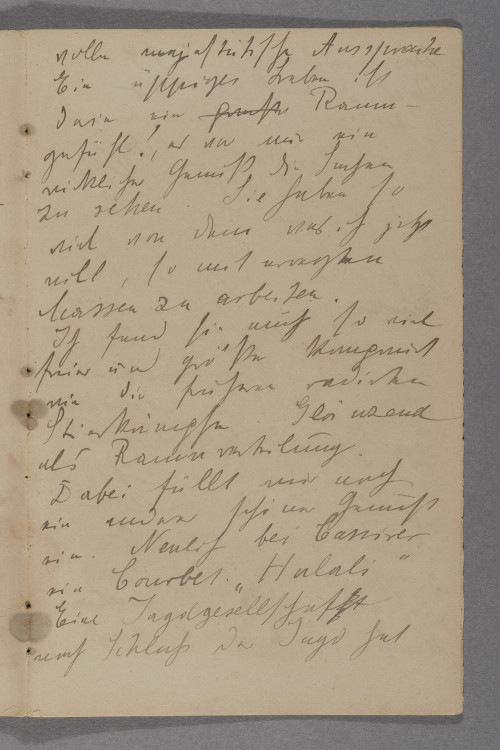 volle majestätische Aussprache
Ein üppiges Leben ist
darin ein Raum-
gefühl!, es war mir ein
wirklicher Genuß die Sachen
zu sehen. Sie haben so
viel von dem was ich jetzt
will, so mit bewegten
Massen zu arbeiten.
Ich fand sie auch so viel
freier und größer komponiert
wie die früheren radierten
Stierkämpfe. Glänzend
als Raumverteilung.
Dabei fällt mir noch
ein andrer schöner Genuß
ein. Neulich bei Cassirer
ein Courbet. „Halali"
Eine Jagdgesellschaft
nach Schluß der Jagd hat